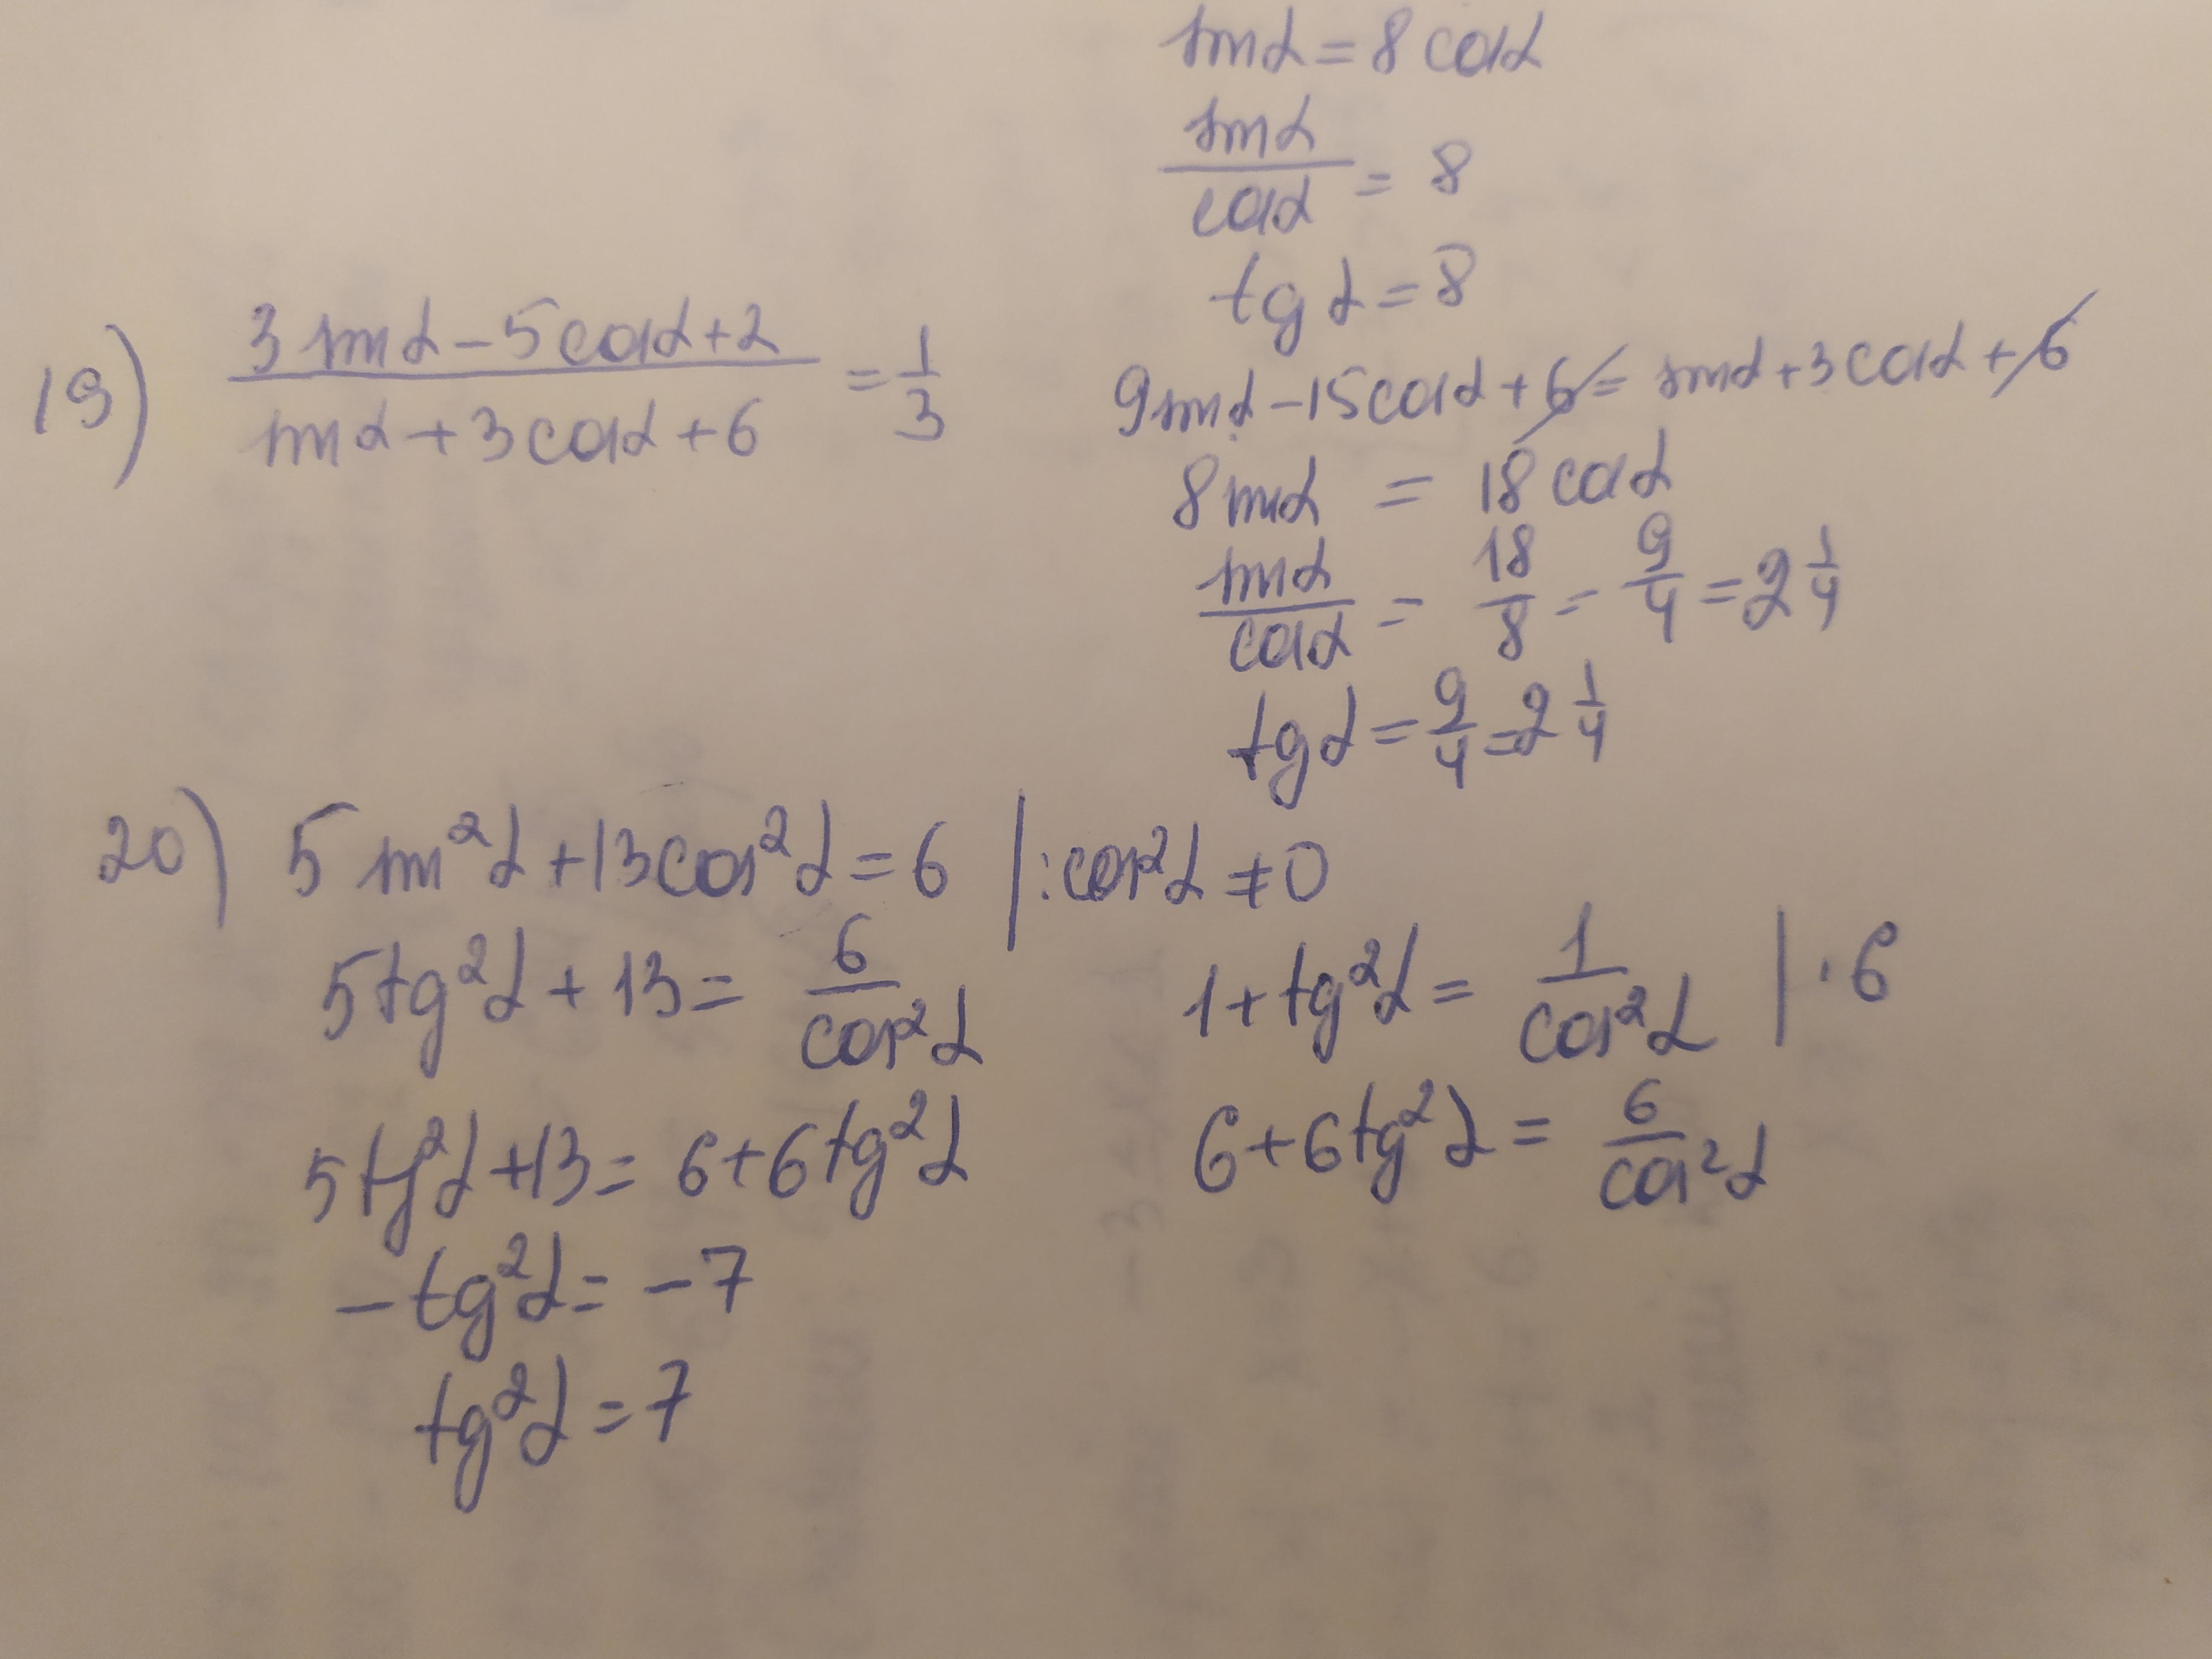 sinα = 8 cosα
sinα/cosα = 8
tg α = 8
19) (3 sinα - 5cosα + 2)/(sinα + 3cosα + 6) = 1/3
9sinα - 15cosα + 6 = sinα + 3cosα + 6
8sinα = 18 cosα
sinα/cosα = 18/8 = 9/4 = 2 1/4
tgα = 9/4 = 2 1/4
20) 5 sin²α + 13cos²α = 6 | : cos²α ≠ 0
5tg²α + 13 = 6/cos²α
1 + tg²α = 1/cos²α | · 6
5tg²α + 13 = 6 + 6tg²α
6 + 6tg²α = 6/cos²α
- tg²α = - 7
tg²α = 7